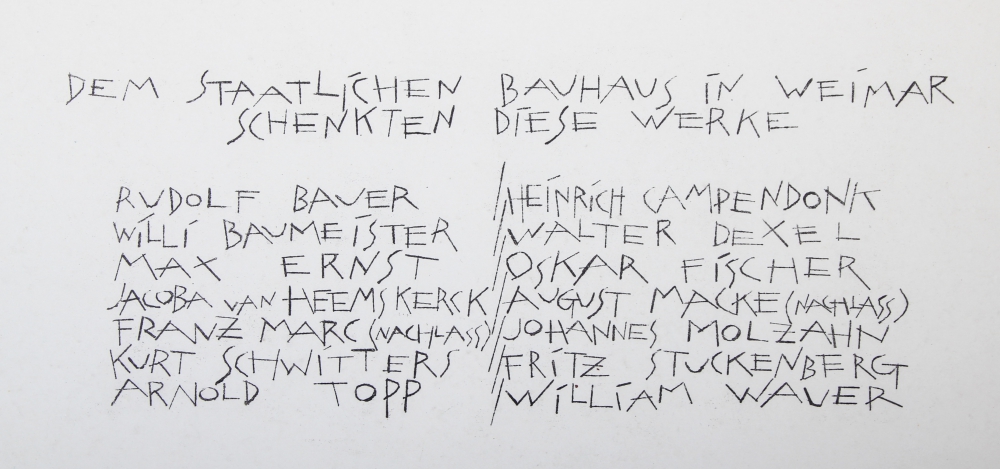 DEM STAATLiCHEN BAUHAUS iN WEiMAR
SCHENKTEN DiESE WERKE
RUDOLF BAUER / HEiNRiCH CAMPENDONK
WiLLi BAUMEiSTER / WALTER DEXEL
MAX ERNST / OSKAR FiSCHER
JACOBA VAN HEEMSKERCK / AUGUST MACKE (NACHLASS)
FRANZ MARC (NACHLASS) / JOHANNES MOLZAHN
KURT SCHWiTTERS / FRiTZ STUCKENBERG
ARNOLD TOPP / WiLLiAM WAUER